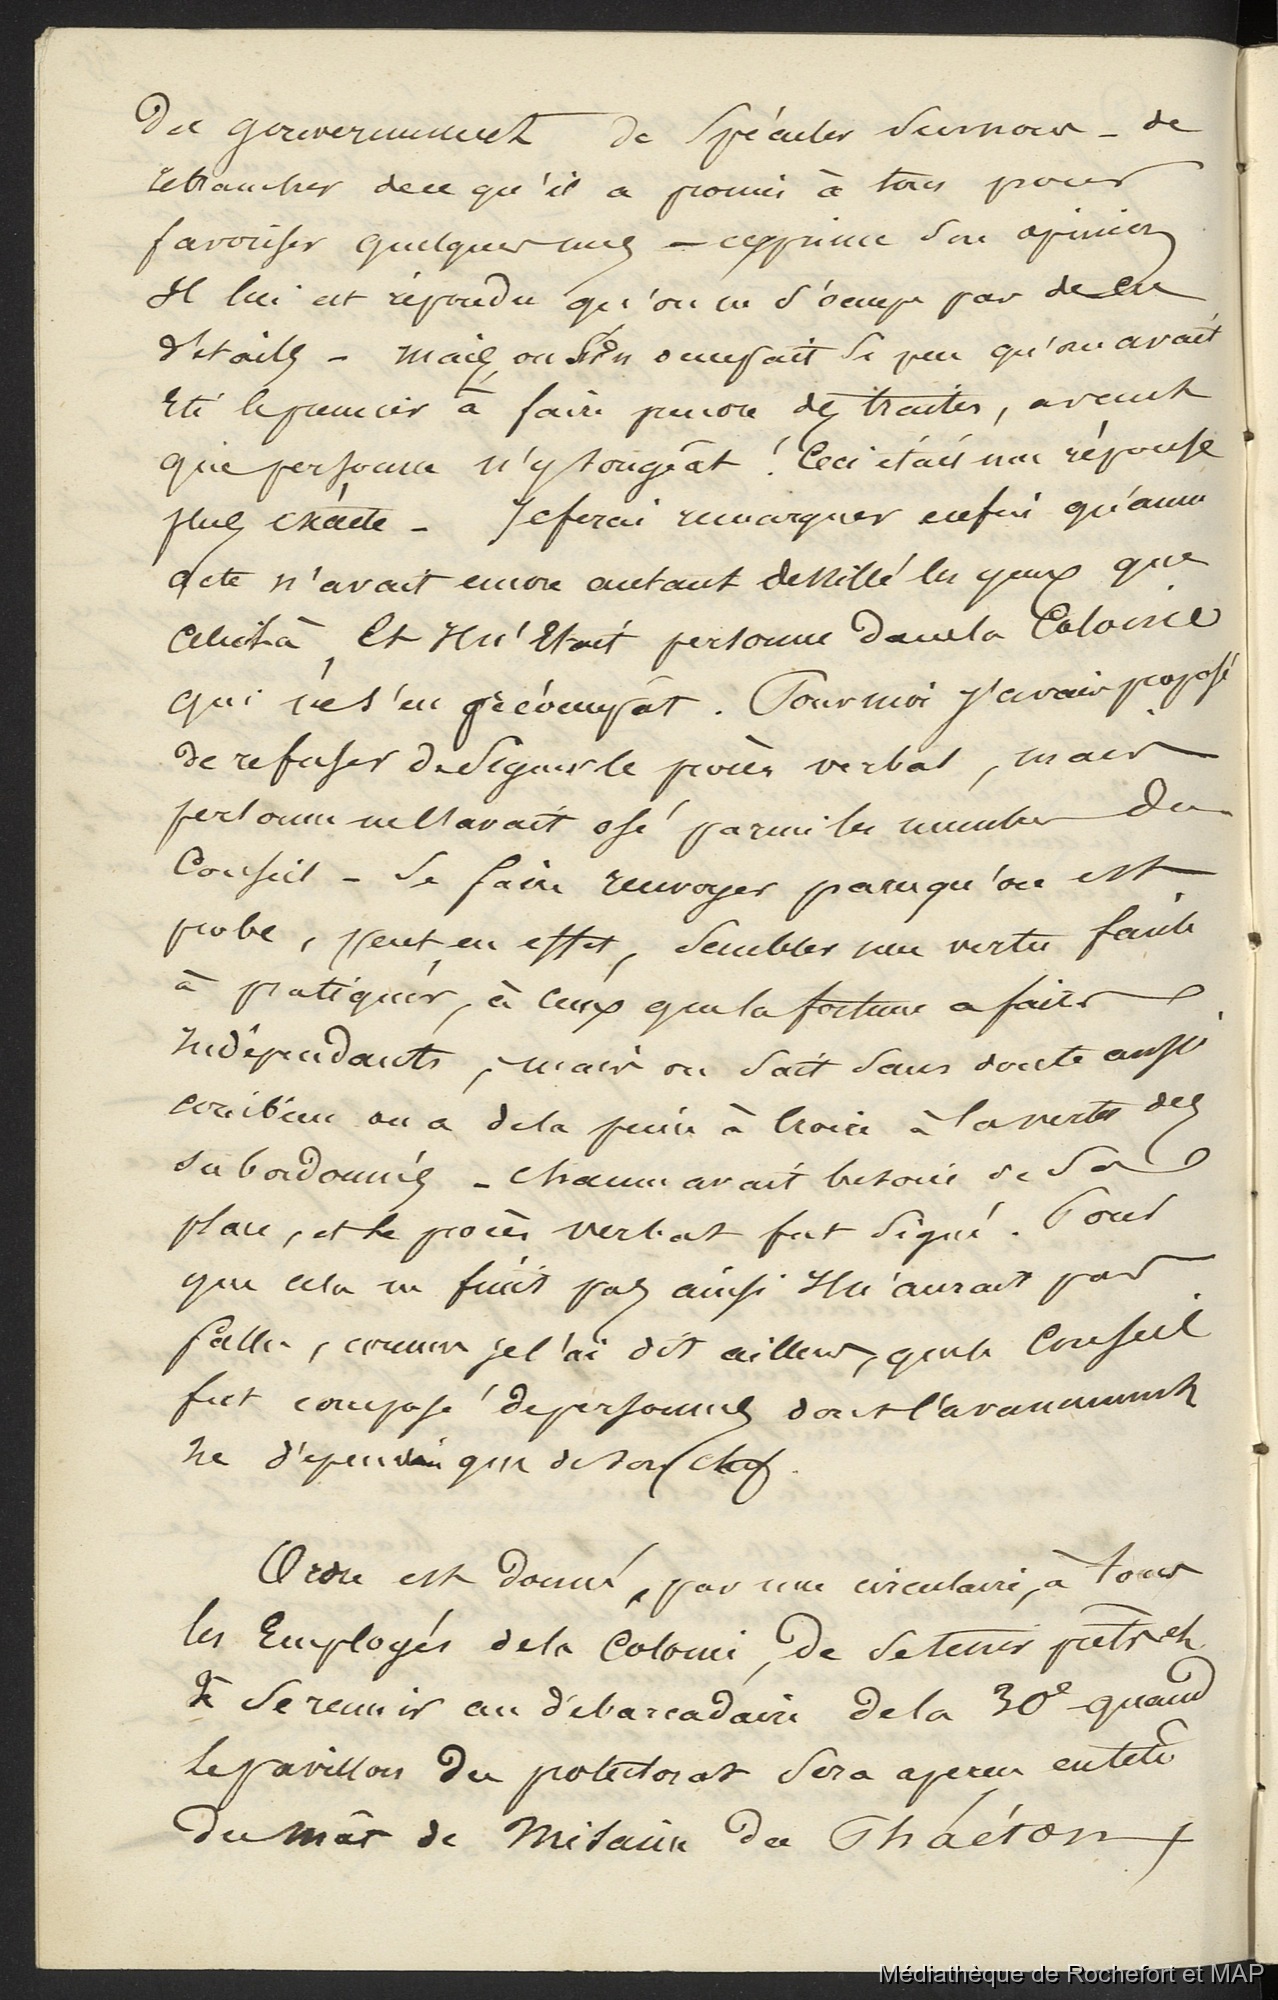 Du gouvernement de spéculer sur nous - de
retrancher de ce qu'il a promis à tous pour
favoriser quelques uns - exprime son opinion
Il lui est répondu qu'on ne s'occupe pas de ces
détails - mais on s'en occupait si peu qu'on avait
été le premier à faire preuve des traites, avant
que personne n'y songeât ! Ceci était une réponse
plus exacte - Je ferai remarquer enfin qu'aucun
acte n'avait encore autant dessillé les yeux que
celui là, Et Il n'Etait personne dans la Colonie
qui ne s'en préoccupât. Pour moi j'avais proposé
de refuser de Signer le procès verbal, mais
personne ne l'avait osé parmi les membres du
Conseil - Se faire renvoyer parcequ'on est
probe, peut, en effet, sembler une vertu facile
à pratiquer, à ceux que la fortune a faits
Indépendants, mais on sait sans doute aussi
combien on a de la peine à croire à la vertu des
subordonnés - chacun avait besoin de sa
place, et le procès verbal fut signé. Pour
que cela ne finit pas ainsi Il n'aurait pas
fallu, comme je l'ai dit ailleurs, que le Conseil
fut composé de personnes dont l'avancement
ne dépendin que de son chef.
Ordre est donné, par une circulaire, à tous
les Employés de la Colonie, de se tenir prêts et
de se reunir au débarcadaire de la 30e quand
le pavillon du protectorat sera aperçu en tête
du mât de Misaine du Phaéton
Médiathèque de Rochefort et MAP